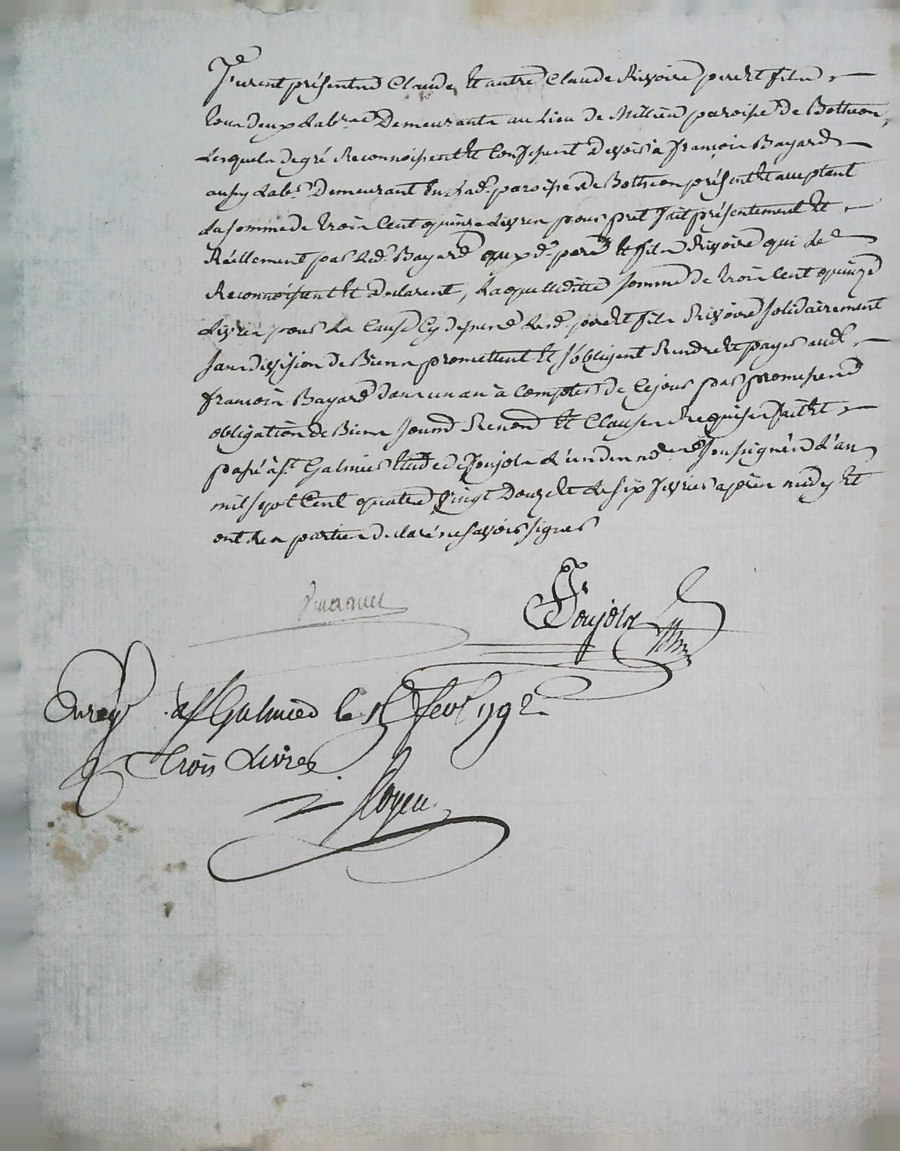 Furent présents Claude et autre Claude Rivoire pere et fils
tous deux Lab.rs Demeurants au Lieu de Millieu paroisse de Botheon,
Lesquels de gré Reconnoissent et Confessent Devoir à françois Bayard
aussy Lab.r Demeurant En Lad. paroisse de Botheon présent et acceptant
La somme de trois Cent quinze Livres pour pret fait présentement et
Réellement par led. Bayard auxd. pere et fils Rivoire qui le
Reconnoissent et Declarent, Laquelle ditte somme de trois Cent quinze
Livres pour La Cause Cy dessus Lesd. pere et fils Rivoire solidairement
sans division de Biens promettent et s'obligent Rendre et payer aud.
françois Bayard dans un an à Compter de Ce jour par promesse
obligation de Biens soum. Renon. et Clauses Requises fait et
passé à st Galmier Etude de Poujols L'un des no.res soussignés L'an
mil sept Cent quatre vingt Douze et Le six fevrier après midy et
ont Les parties declaré ne savoir signer
Poujols
Enregé. à st Galmier le fevr 1792
trois Livres